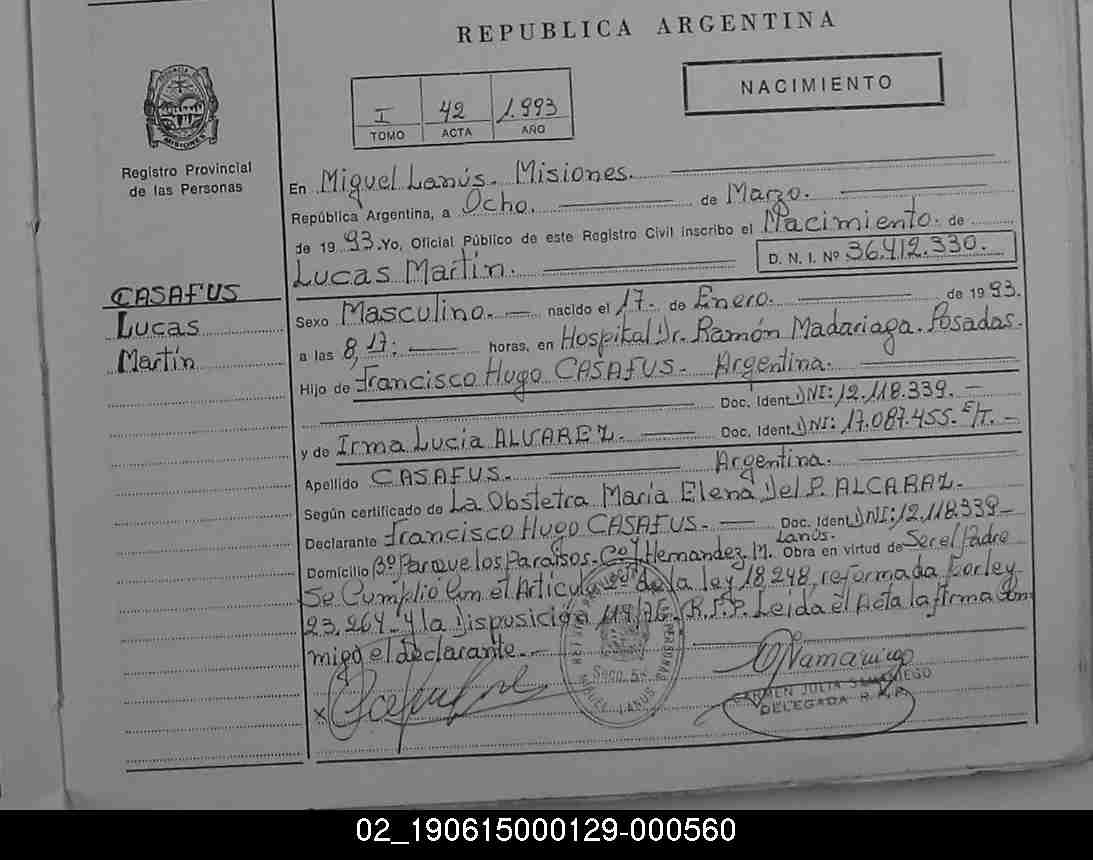 REPUBLICA ARGENTINA
NACIMIENTO
I 42 1.993
TOMO ACTA AÑO
Registro Provincial
de las Personas
CASAFUS
Lucas
Martín
En Miguel Lanús. Misiones.
República Argentina, a Ocho. de Marzo.
de 19 93. Yo, Oficial Público de este Registro Civil inscribo el Nacimiento. de
Lucas Martín. D. N. I. Nº 36.412.330.
Sexo Masculino. nacido el 17. de Enero. de 19 93.
a las 8,17: horas, en Hospital Dr. Ramón Madariaga. Posadas.
Hijo de Francisco Hugo CASAFUS. Argentina.
Doc. Ident. DNI: 12.118.339.
y de Irma Lucia ALVAREZ. Doc. Ident. DNI: 17.087.455. E/T.
Argentina.
Apellido CASAFUS.
Según certificado de La Obstetra María Elena Del P. ALCARAZ.
Declarante Francisco Hugo CASAFUS. Doc. Ident. DNI: 12.118.339
Domicilio Bº Parque los Paraísos. Hernandez. M. Lanús. Obra en virtud de Ser el Padre
Se Cumplió Con el Artículo de la ley 18.248, reformada por ley
23.264 y la Disposición R.P.P. Leída el Acta la firma Con
migo el declarante.
CARMEN JULIA
DELEGADA R.P.P.
02_190615000129-000560